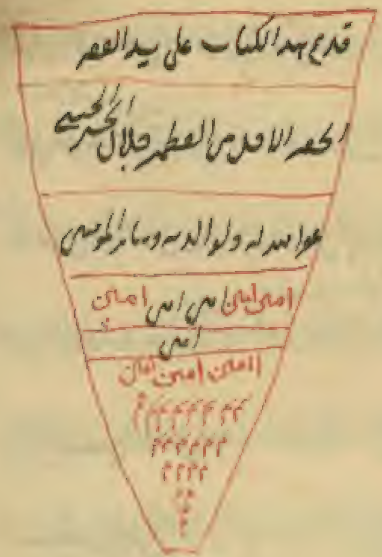 قد تم هذا الكتاب على يد الفقير
الحقير الاقل من القطمير جلال الحسيني
عفا الله له ولوالديه وسائر المؤمنين
امين امين امين امين امين
امين
امين امين امين
م م م م م م م م
م م م م م م
م م م م
م م
م
م